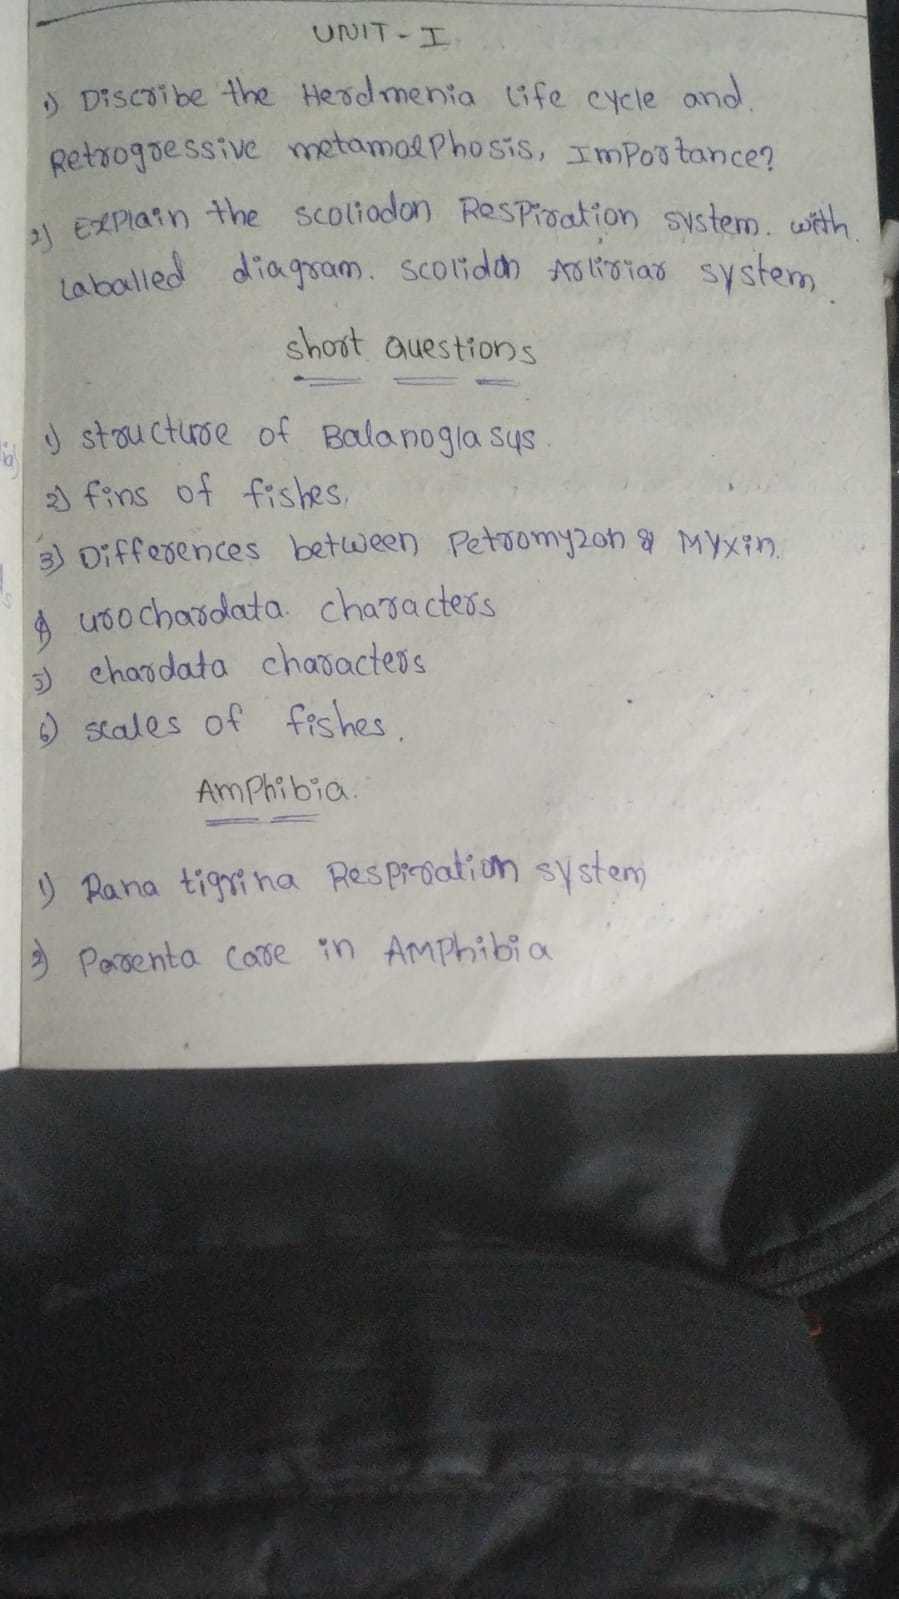 UNIT - I
1) Discribe the Herdmenia life cycle and.
Retrogressive metamorphosis, Importance?
2) Explain the scoliodon Respiration system. with.
Laballed diagram. scolidon system.
short questions
1) structure of Balanoglasys.
2) fins of fishes.
3) Differences between Petromyzon & Myxin.
4) urochardata. characters
5) chardata characters
6) scales of fishes.
Amphibia.
1) Rana tigrina Respiration system
2) Parenta care in AMPhibia